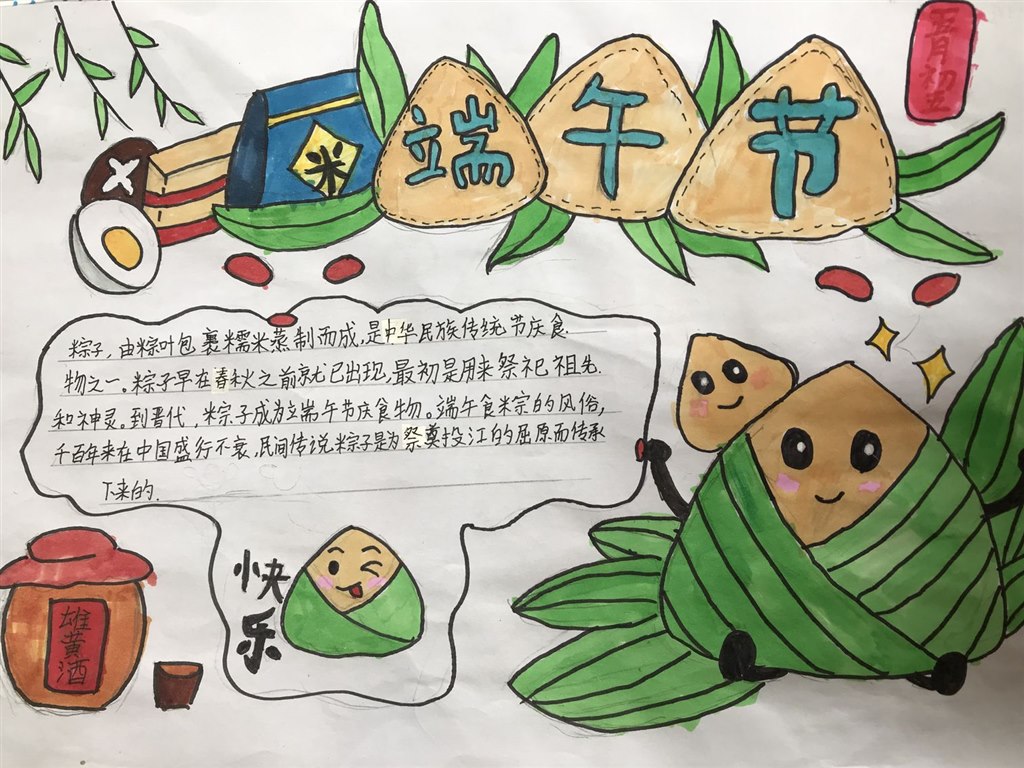 端午节
五月初五
米
粽子,由粽叶包裹糯米蒸制而成,是中华民族传统节庆食
物之一。粽子早在春秋之前就已出现,最初是用来祭祀祖先
和神灵。到晋代,粽子成为端午节庆食物。端午食粽的风俗,
千百年来在中国盛行不衰,民间传说粽子是为祭奠投江的屈原而传承
下来的.
快乐
雄黄酒